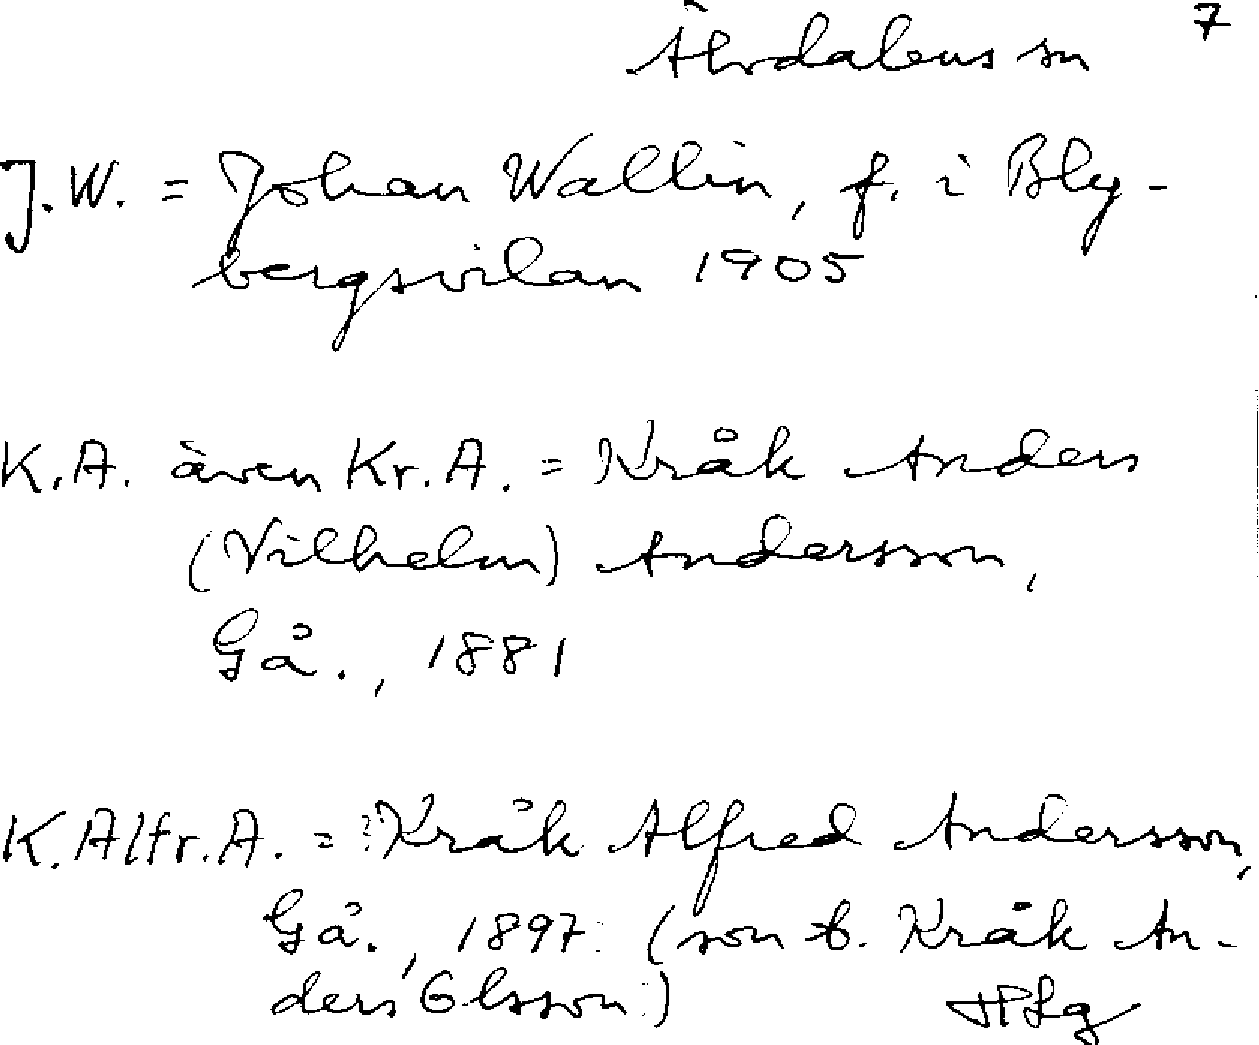 Älvdalens sn 7
J.W. = Johan Wallin, f. i Bly-
bergsvilan 1905
K.A. även Kr.A. = Kråk Anders
(Vilhelm) Andersson,
Gå., 1881
K.Alfr.A. = Kråk Alfred Andersson,
Gå., 1897. (son t. Kråk An-
ders Olsson)